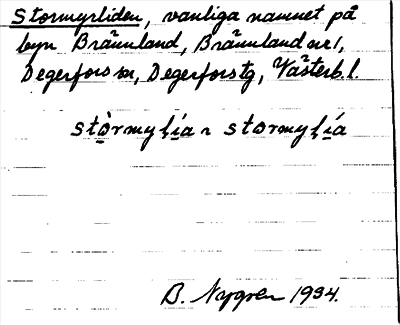 Stormyrliden, vanliga namnet på
byn Brännland, Brännland nr 1,
Degerfors sn, Degerfors tg, Västerb. l.
stòrmyl̥ía ~ stormyl̥ía
B. Nygren 1934.